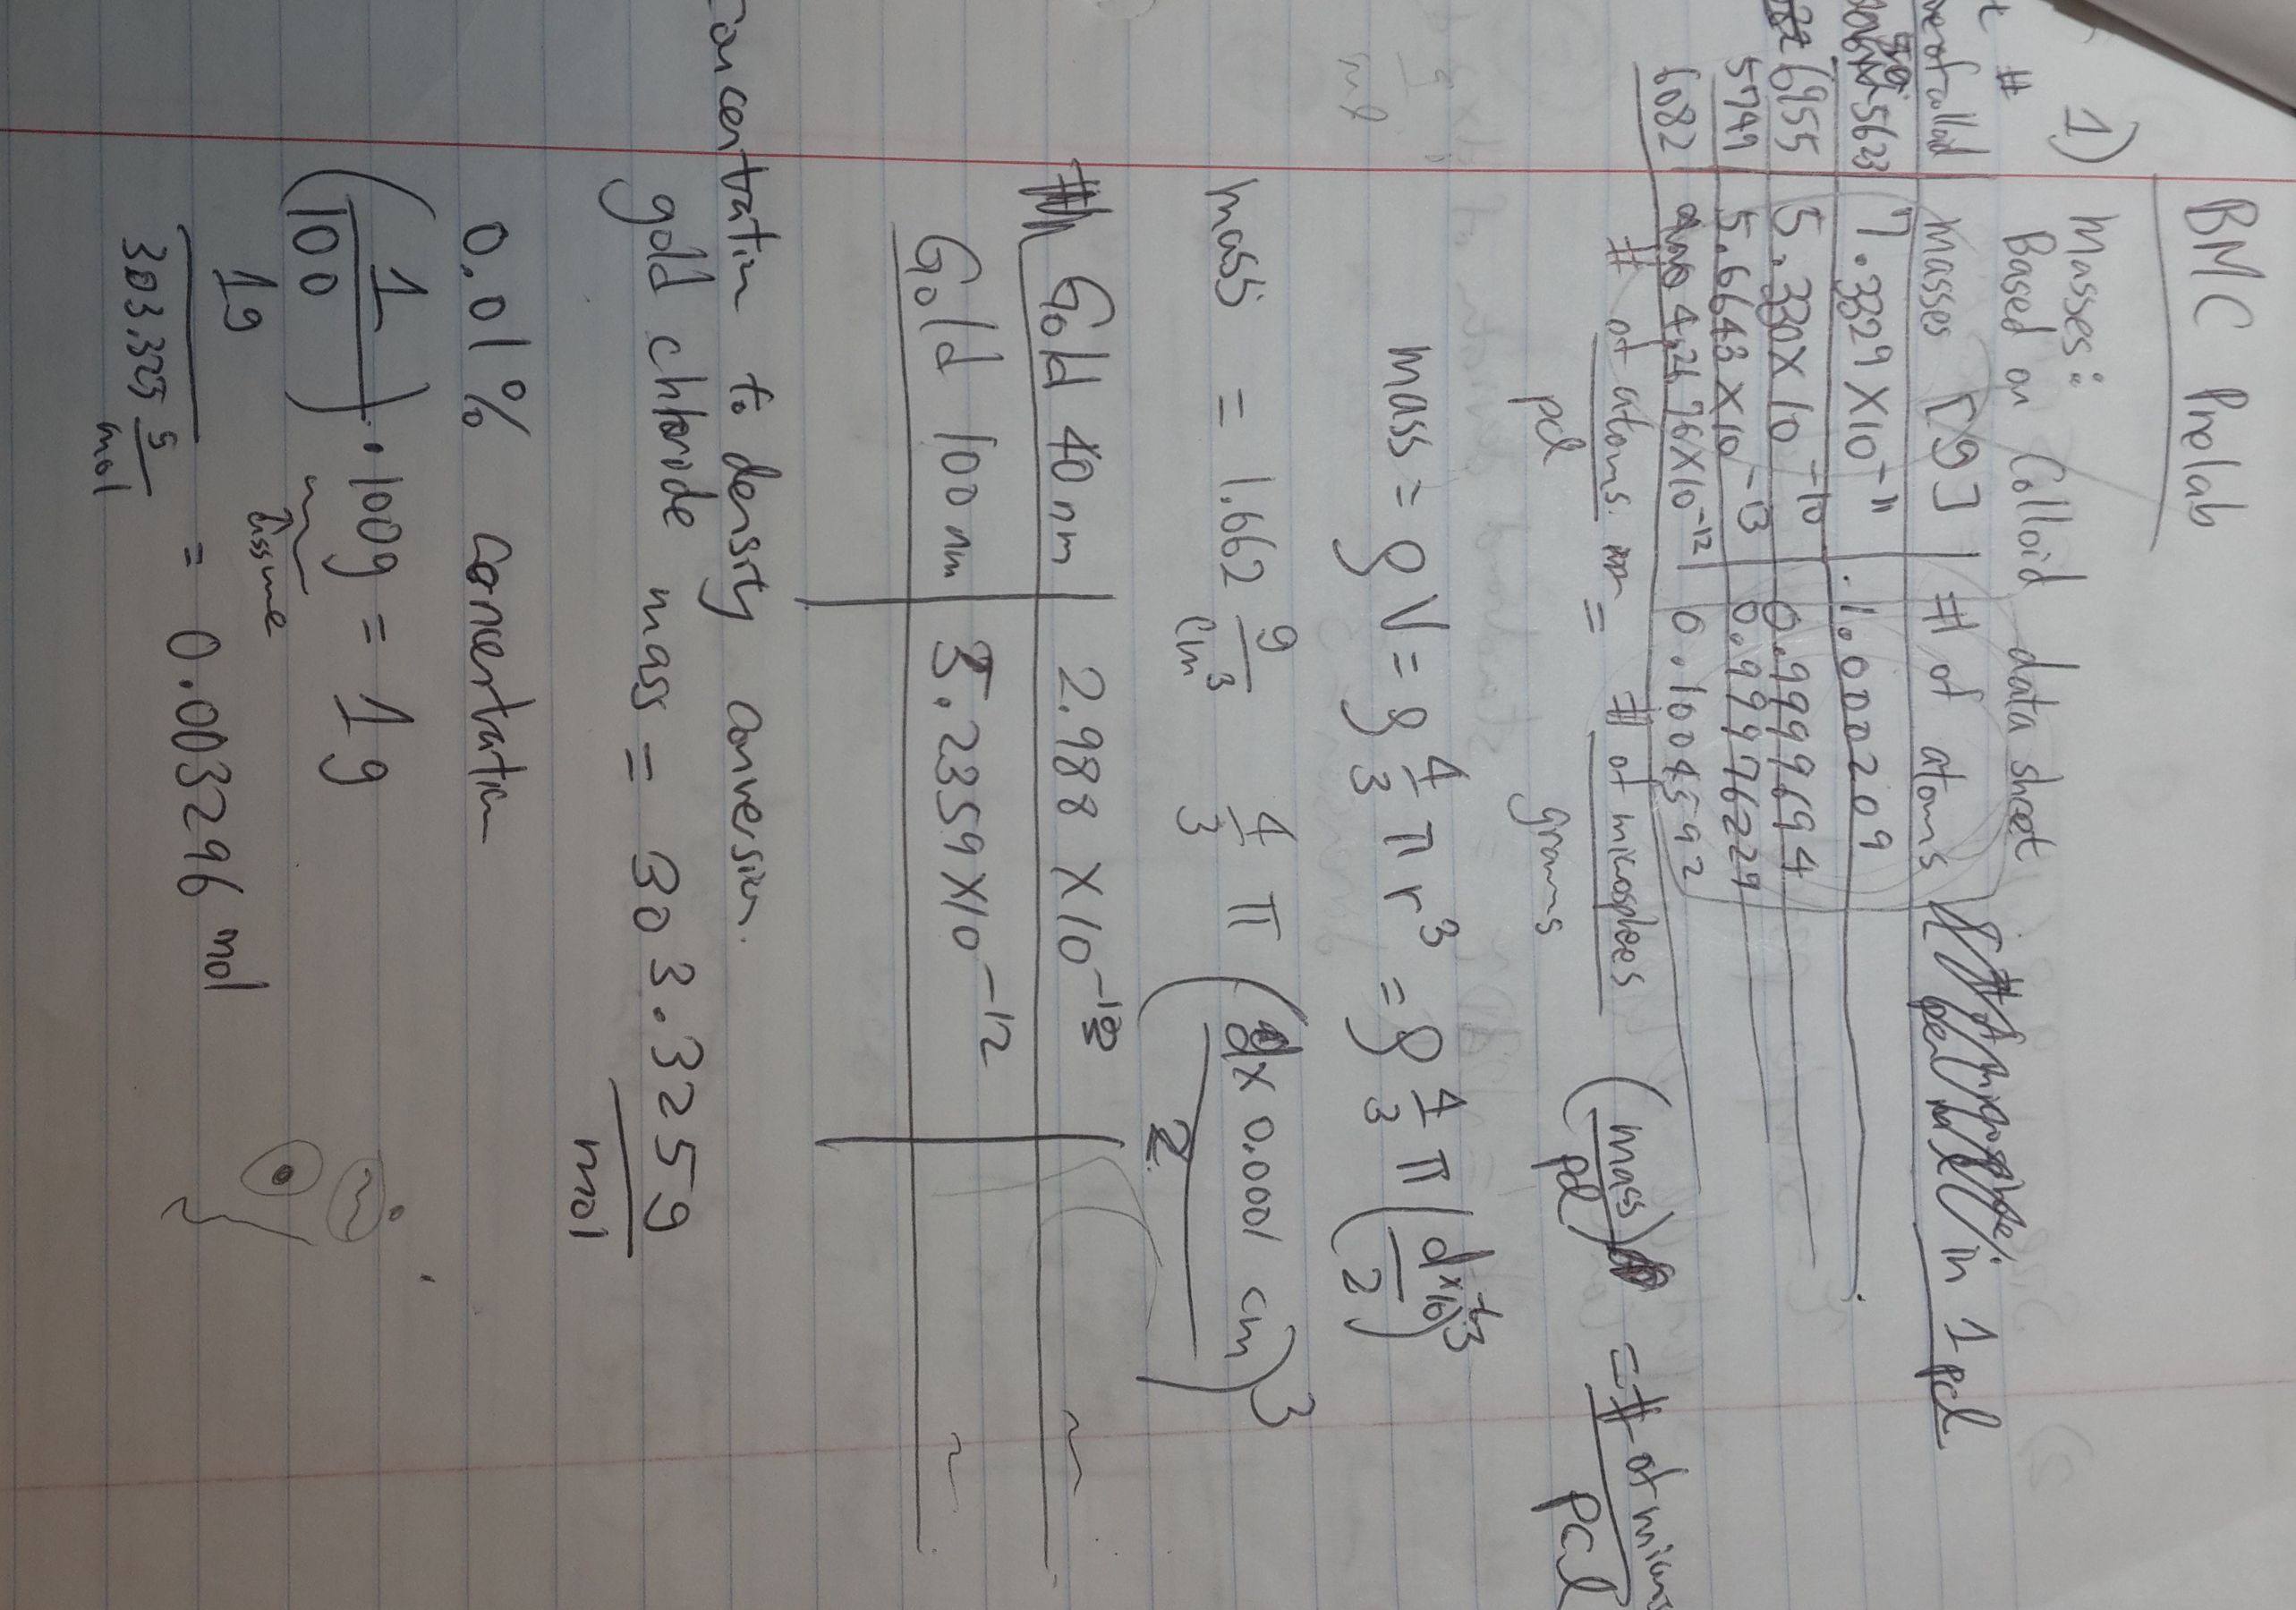 BMC Prelab
1) Masses:
Based on Colloid data sheet
# Masses [g] | # of atoms in 1 pcl
5623 | 7.329 X 10^-11 | 1.000209
6955 | 5.330 X 10^-10 | 0.9999694
5749 | 5.6643 X 10^-13 | 0.99976229
6082 | 4.2676 X 10^-12 | 0.1004592
# of atoms / pcl = # of microspheres / grams (mass / pcl) = # of micros / pcl
mass = ρV = ρ 4/3 π r^3 = ρ 4/3 π (d x 10^-4 / 2)^3
mass = 1.662 g/cm^3 4/3 π (d x 0.0001 cm / 2)^3
Gold 40 nm | 2.988 X 10 | ~
Gold 100 nm | 5.2359 X 10^-12 | ~
Concentration to density conversion.
gold chloride mass = 303.325 g/mol
0.01% concentration
(1/100) · 100g = 1g
assume
1g / 303.325 g/mol = 0.003296 mol